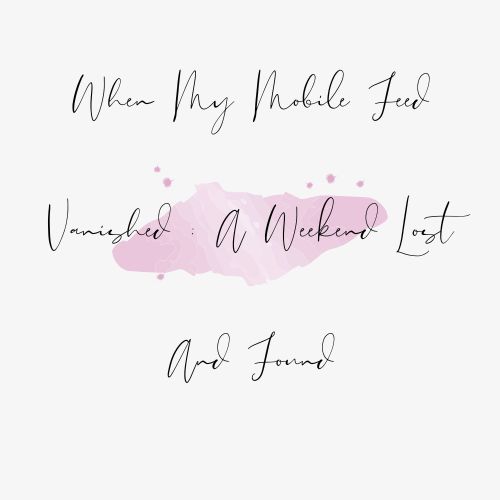 When My Mobile Feed
Vanished : A Weekend Lost
And Found